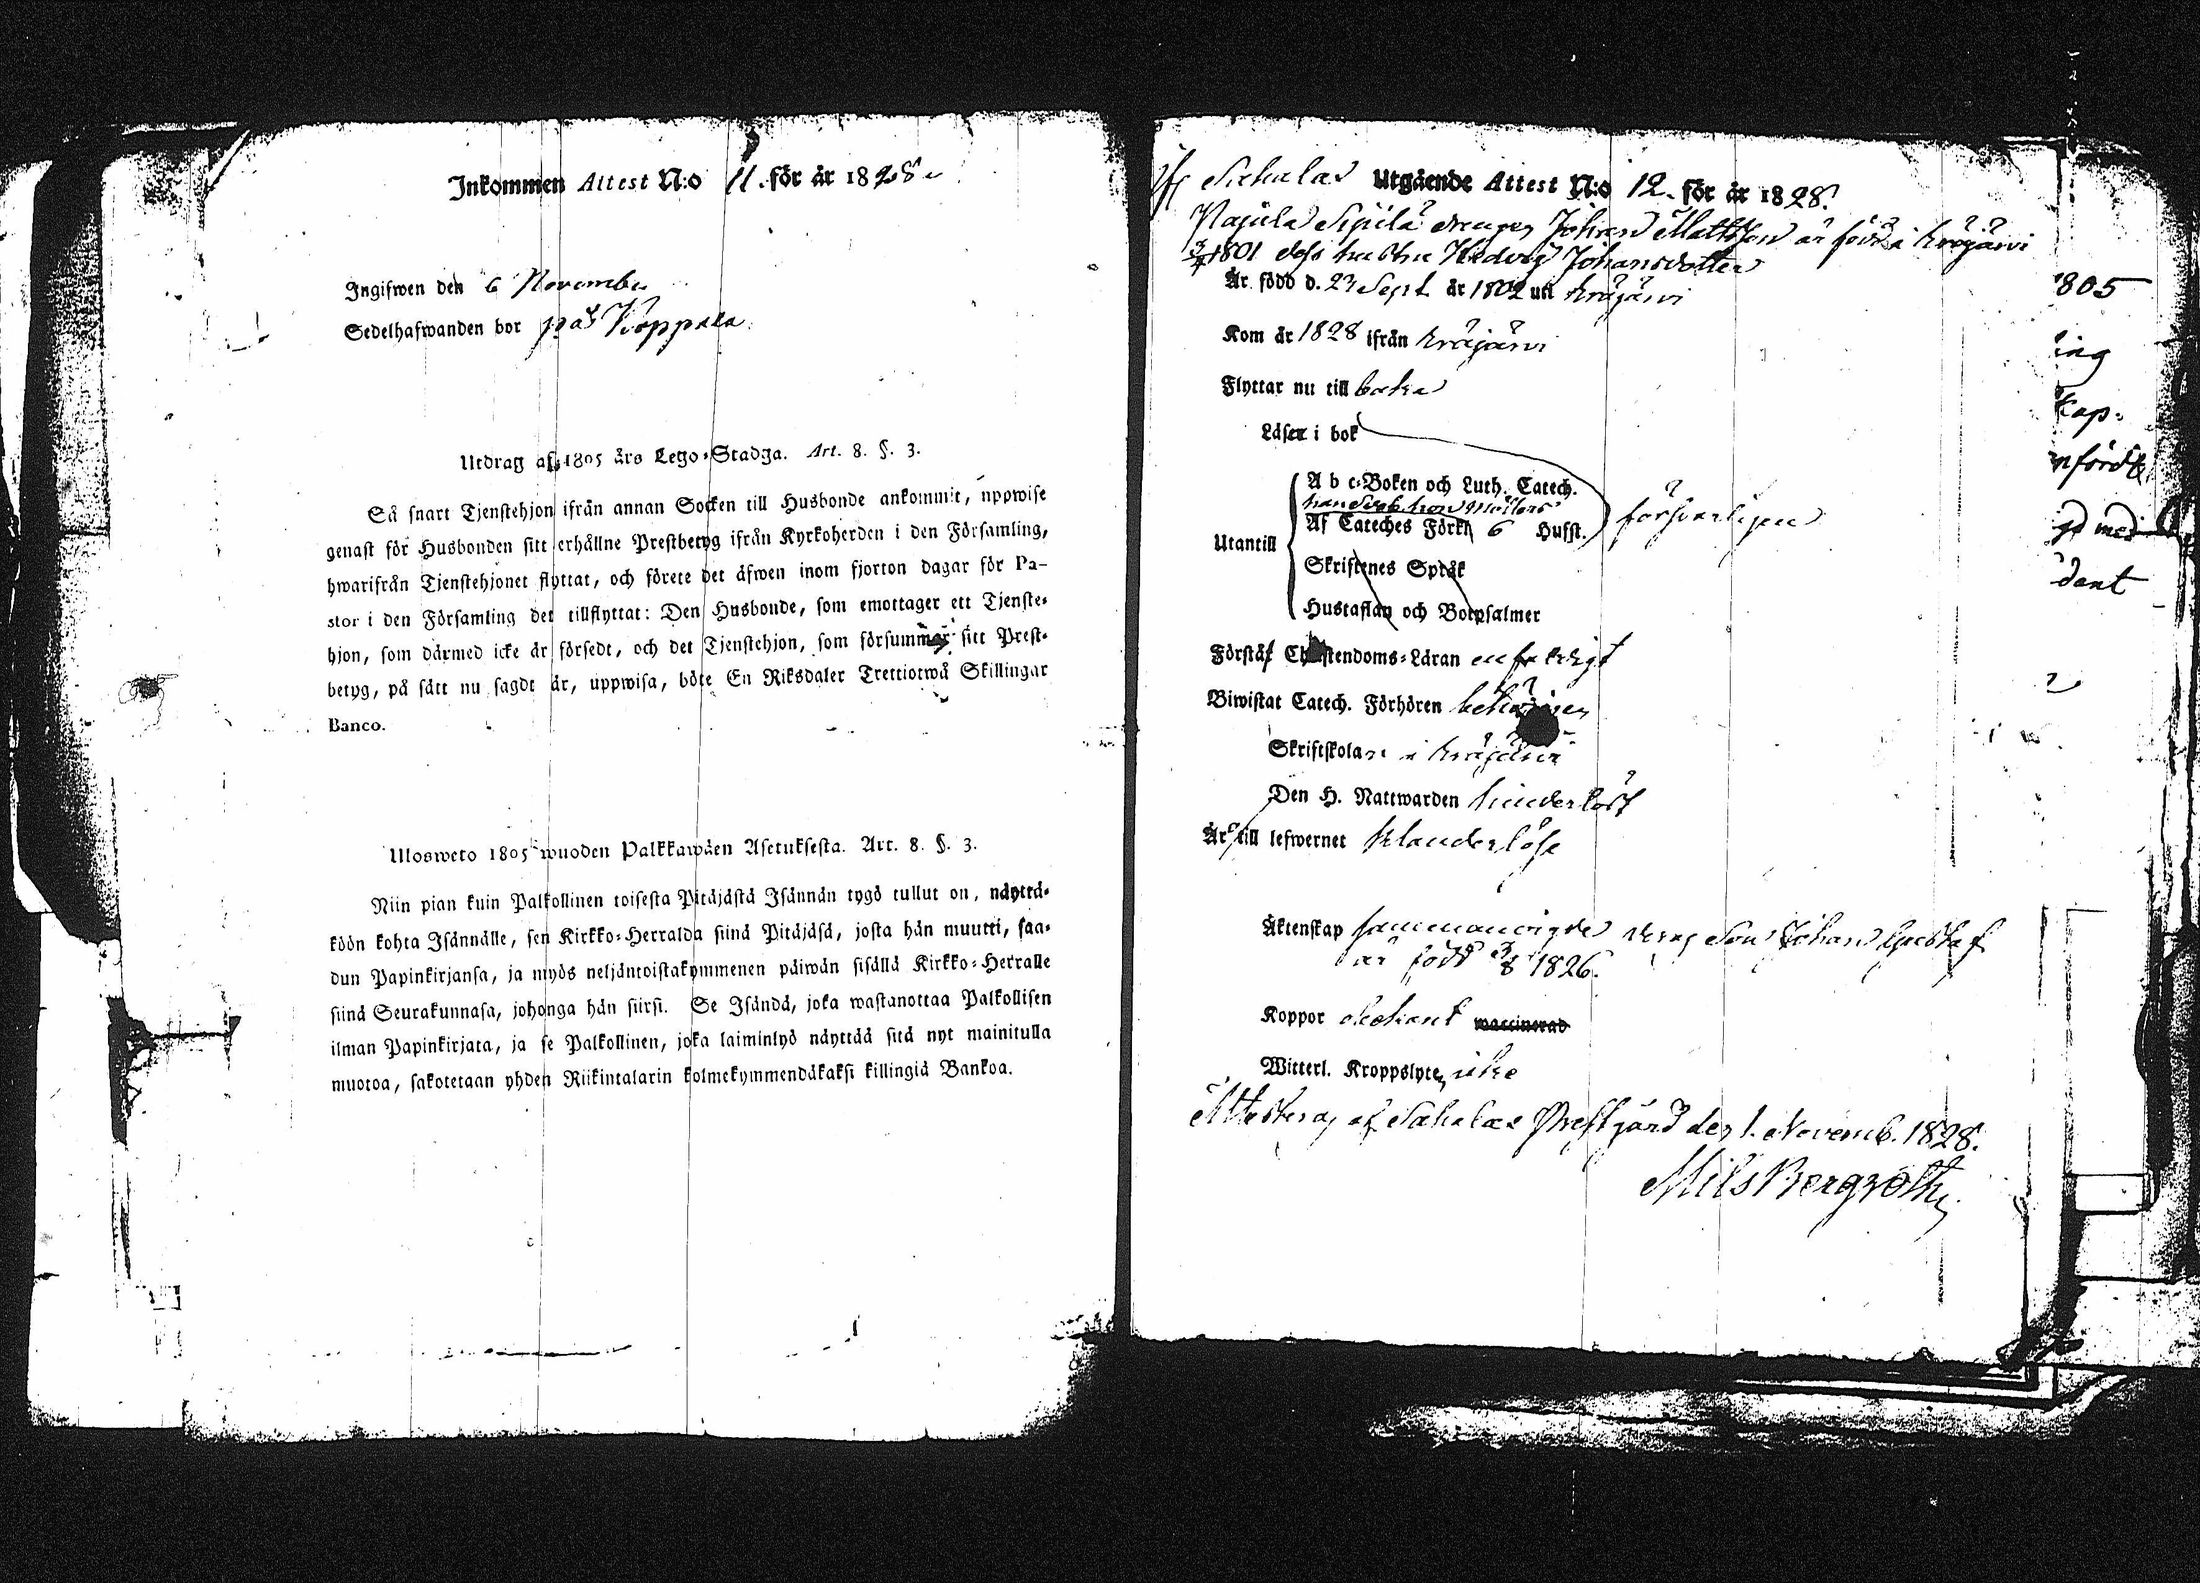 Inkommen Attest N:o 11. för år 1828.
Ingifwen den 6 November
Sedelhafwanden bor på Koppala
Utdrag af 1805 års Lego-Stadga. Art. 8. §. 3.
Så snart Tjenstehjon ifrån annan Socken till Husbonde ankommit, uppwise
genast för Husbonden sitt erhållne Prestbetyg ifrån Kyrkoherden i den Församling,
hwarifrån Tjenstehjonet flyttat, och förete det äfwen inom fjorton dagar för Pa-
stor i den Församling det tillflyttat: Den Husbonde, som emottager ett Tjenste-
hjon, som därmed icke är försedt, och det Tjenstehjon, som försummar sitt Prest-
betyg, på sätt nu sagdt är, uppwisa, böte En Riksdaler Trettiotwå Skillingar
Banco.
Ulosweto 1805 wuoden Palkkawäen Asetuksesta. Art. 8. §. 3.
Niin pian kuin Palkollinen toisesta Pitäjästä Isännän tygö tullut on, näyttä-
köön kohta Isännälle, sen Kirkko-Herralda siinä Pitäjäsä, josta hän muutti, saa-
dun Papinkirjansa, ja myös neljäntoistakymmenen päiwän sisällä Kirkko-Herralle
siinä Seurakunnasa, johonga hän siirsi. Se Isändä, joka wastanottaa Palkollisen
ilman Papinkirjata, ja se Palkollinen, joka laiminlyö näyttää sitä nyt mainitulla
muotoa, sakotetaan yhden Riikintalarin kolmekymmendäkaksi killingiä Bankoa.
Af Sahalax Utgående Attest N:o 12. för år 1828.
Pajula Sipilä drengen Johan Mattsson är född i Kräjärvi
1801 dess hustru Hedvig Johansdotter
Är född d. 23 Sept. år 1802 uti Kräjärvi
Kom år 1828 ifrån Kräjärvi
Flyttar nu till baka
Läser i bok
Utantill
A b c-Boken och Luth. Catech.
han Sveb. hon Möllers
Af Cateches Förkl. 6 Hufst.
försvarligen
Skriftenes Språk
Hustaflan och Botpsalmer
Förstår Christendoms-Läran enfaldigt
Biwistat Catech. Förhören behörigen
Skriftskolan i Kräjärvi
Den H. Nattwarden hinderlöst
Är till lefwernet klanderlöse
Äktenskap sammanvigde deras Son Johan Gustaf
är född 3/8 1826.
Koppor obekant waccinerad
Witterl. Kroppslyte icke
Attesteras af Sahalax Prestgård den 1. Novemb. 1828.
Nils Bergroth
805
ing
kap:
nförd
med
dent